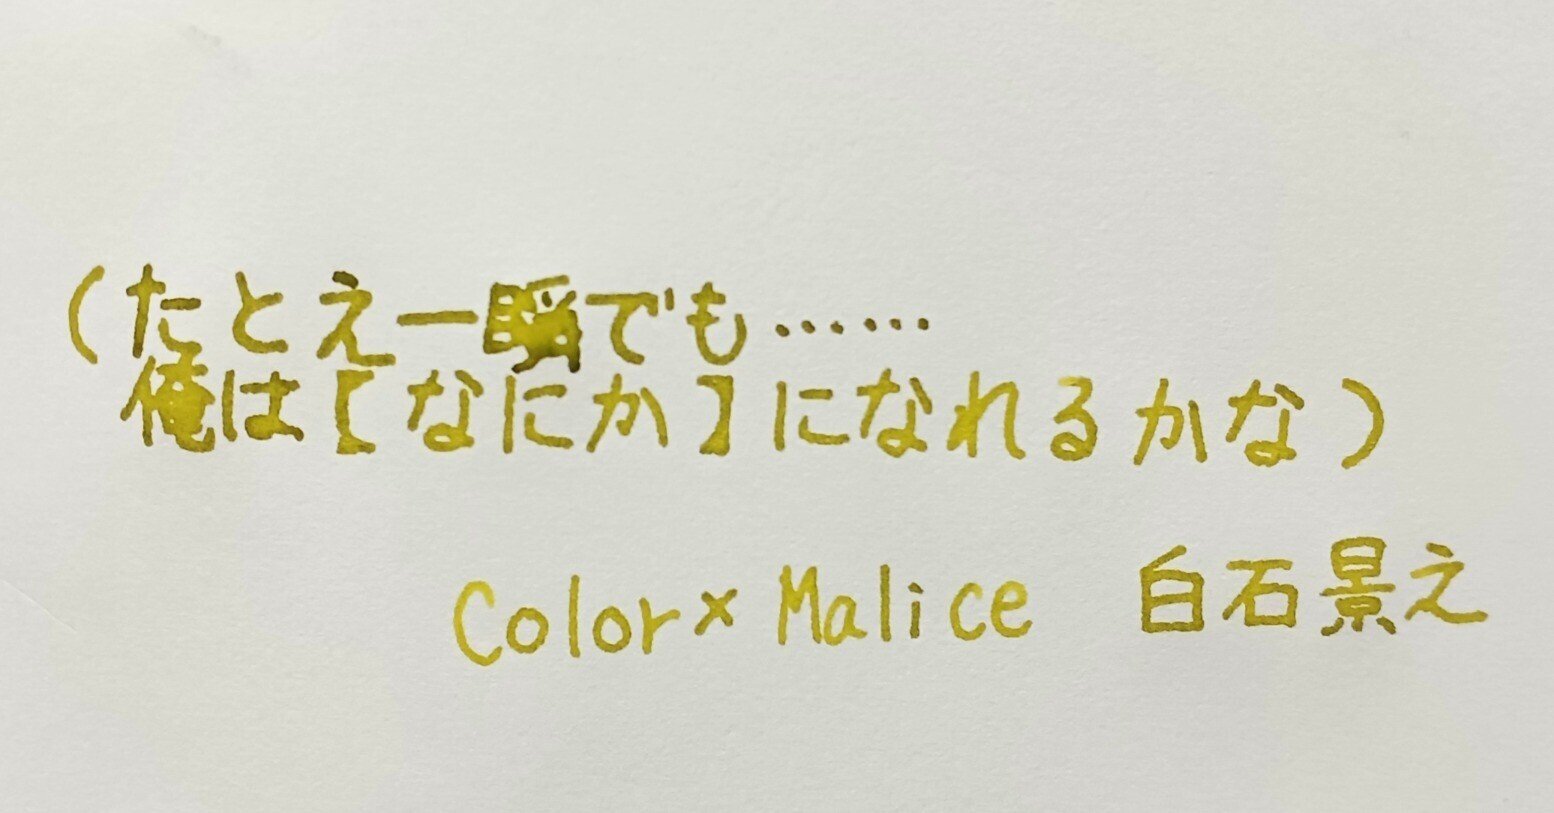 (たとえ一瞬でも……
俺は【なにか】になれるかな)
Color×Malice 白石景之